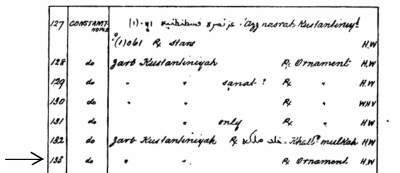 127 CONSTANTI-NOPLE Azz nasrah Kustantiniyh
(1)061 Rx stars H.W
128 do Zarb Kustantiniyah Rx Ornament H.W
129 do " " sanat? Rx " H.W
130 do " " Rx " WHV
131 do " " only Rx " H.W
132 do Zarb Kustantiniyah Rx خلد ملكه Khalld mulkah H.W
133 do " " Rx Ornament H.W